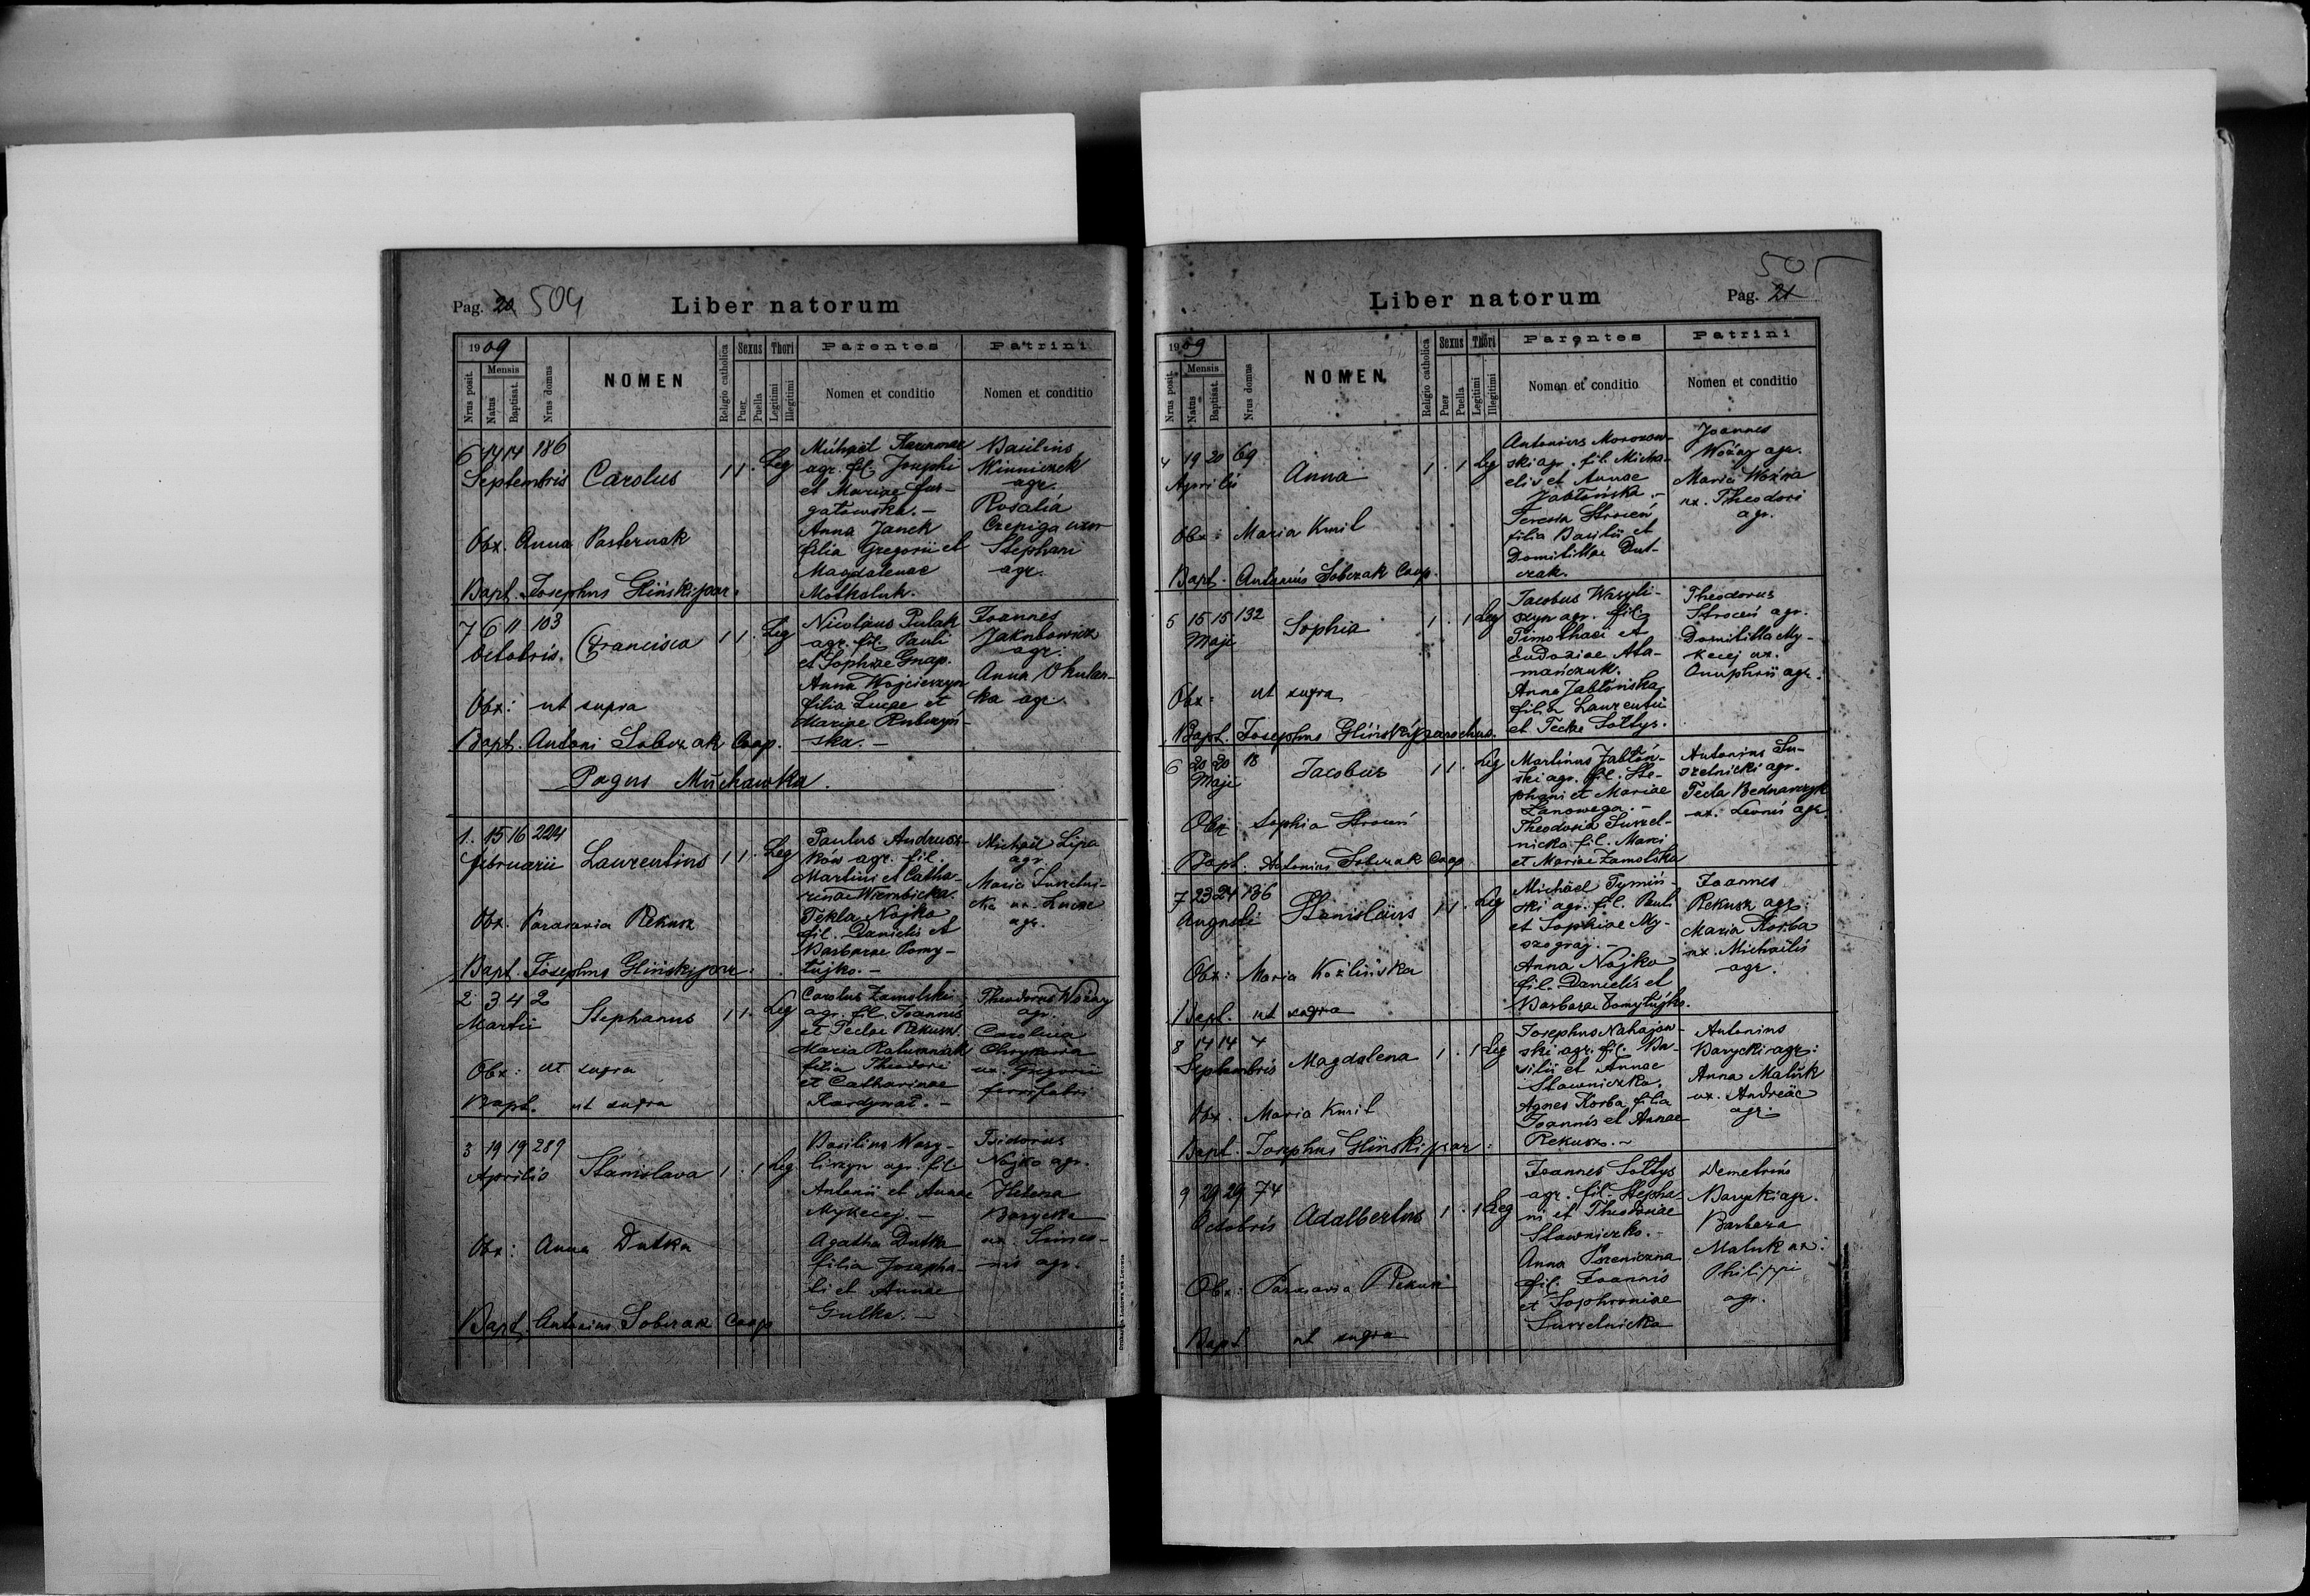 Pag. 20 504
Liber natorum
1909
Nrus posit.
Mensis
Natus
Baptisat.
Nrus domus
NOMEN
Religio catholica
Sexus
Puer
Puella
Thori
Legitimi
Illegitimi
Parentes
Nomen et conditio
Patrini
Nomen et conditio
6 14 14 186
Septembris
Carolus
1 1 . Leg
Michaël
agr. fil. Josephi
et Mariae Gur-
gatowska. -
Anna Janek
filia Gregorii et
Magdalenae
Motkaluk.
Basilius
Winniczek
agr.
Rosalia
Czepiga uxor
Stephani
agr.
Obx. Anna Pasternak
Bapt. Josephus Gliński par.
7 6 11 103
Octobris.
Francisca
1 1 . Leg
Nicolaus Pulak
agr. fil. Pauli
et Sophiae Gnap.
Anna Wojcieszyn
filia Lucae et
Mariae Rubczyń-
ska. -
Joannes
Jakubowicz
agr.
Anna Okular-
ka agr.
Obx: ut supra
Bapt. Antoni Sobczak Coop.
Pagus Muchawka.
1. 15 16 224
februarii
Laurentius
1 1 . Leg
Paulus Andrusz-
ków agr. fil.
Martini et Catha-
rinae Wierzbicka.
Tekla Nojko
fil. Danielis et
Barbarae Pomy-
tujko. -
Michaël Lipa
agr.
Maria Suszelnic-
ka ux. Lucae
agr.
Obx. Parasavia Rekusz
Bapt. Josephus Gliński par.
2 3 4 2
Martii
Stephanus
1 1 . Leg
Carolus Zamolski
agr. fil. Joannis
et Teclae Rekusz.
Maria Ratuszniak
filia Theodori
et Catharinae
Kardynał. -
Theodorus Woźny
agr.
Carolina
ux. Gregorii
ferrifabri
Obx: ut supra
Bapt. ut supra
3 19 19 289
Aprilis
Stanislava
1 . 1 Leg
Basilius Wasy-
liszyn agr. fil.
Antonii et Annae
Mykecej. -
Agatha Dutka
filia Josapha-
ti et Annae
Gulka. -
Isidorus
Nojko agr.
Helena
Barycka
ux. Simeo-
nis agr.
Obx: Anna Dutka
Bapt. Antonius Sobczak Coop
505
Liber natorum
Pag. 21
1909
Nrus posit.
Mensis
Natus
Baptisat.
Nrus domus
NOMEN
Religio catholica
Sexus
Puer
Puella
Thori
Legitimi
Illegitimi
Parentes
Nomen et conditio
Patrini
Nomen et conditio
4 19 20 69
Aprilis
Anna
1 . 1 Leg
Antonius Morozow-
ski agr. fil. Micha-
elis et Annae
Jabłońska. -
Teresia Strocen
filia Basilii et
Domitillae Dut-
czak.
Joannes
Woźny agr.
Maria Woźna
ux. Theodori
agr.
Obx: Maria Kmil
Bapt. Antonius Sobczak Coop.
5 15 15 132
Maji
Sophia
1 . 1 Leg
Jacobus Wasyli-
szyn agr. fil.
Timothaei et
Eudoxiae Ata-
mańczuk.
Anna Jabłońska
filia Laurentii
et Teclae Sołtys.
Theodorus
Stroceń agr.
Domitilla My-
kecej ux.
Onuphrii agr.
Obx: ut supra
Bapt. Josephus Gliński parochus.
6 20 20 18
Maji
Jacobus
1 1 . Leg
Martinus Jabłoń-
ski agr. fil. Ste-
phani et Mariae
Łanowega. -
Theodosia Suszel-
nicka fil. Marci
et Mariae Zamolska
Antonius Su-
szelnicki agr.
Tecla Bednarczyk
ux. Leonis agr.
Obx: Sophia Stroceń
Bapt. Antonius Sobczak Coop
7 23 24 136
Augusti
Stanislaus
1 1 . Leg
Michaël Tymiń-
ski agr. fil. Pauli
et Sophiae My-
szograj. -
Anna Nojko
fil. Danielis et
Barbarae Pomytujko.
Joannes
Rekusz agr.
Maria Korba
ux. Michaëlis
agr.
Obx: Maria Koźlińska
Bapt. ut supra
8 14 14 4
Septembris
Magdalena
1 . 1 Leg
Josephus Nahajow-
ski agr. fil. Ba-
silii et Annae
Sławniczka.
Agnes Korba filia
Joannis et Annae
Rekusz. -
Antonius
Barycki agr.
Anna Maluk
ux. Andreae
agr.
Obx. Maria Kmil
Bapt. Josephus Gliński par.
9 29 29 74
Octobris
Adalbertus
1 . 1 Leg
Joannes Sołtys
agr. fil. Stepha-
ni et Theodosiae
Sławniczko. -
Anna Pszeniczna
fil. Joannis
et Sophroniae
Suszelnicka
Demetrius
Barycki agr.
Barbara
Maluk ux.
Philippi
agr.
Obx: Parasavia Rekusz
Bapt. ut supra